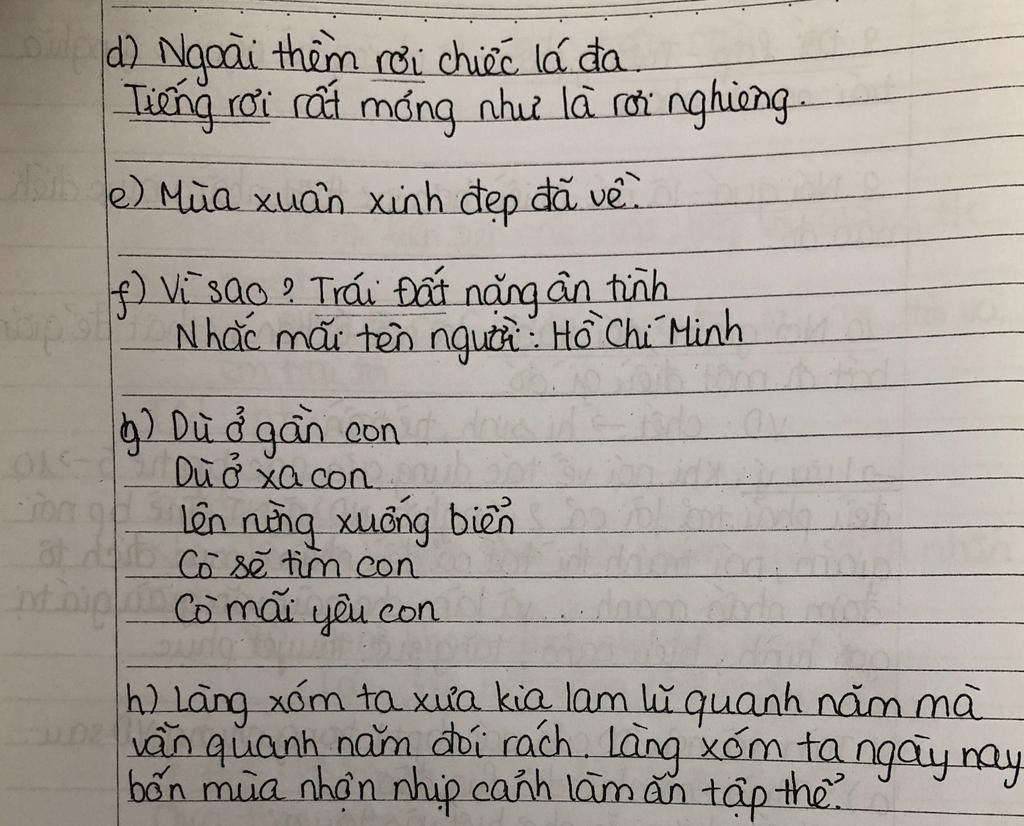 d) Ngoài thềm rơi chiếc lá đa.
Tiếng rơi rất mỏng như là rơi nghiêng.
e) Mùa xuân xinh đẹp đã về.
f) Vì sao? Trái Đất nặng ân tình
Nhắc mãi tên người: Hồ Chí Minh
g) Dù ở gần con
Dù ở xa con
Lên rừng xuống biển
Cò sẽ tìm con
Cò mãi yêu con
h) Làng xóm ta xưa kia lam lũ quanh năm mà
vẫn quanh năm đói rách. Làng xóm ta ngày nay
bốn mùa nhộn nhịp cảnh làm ăn tập thể.